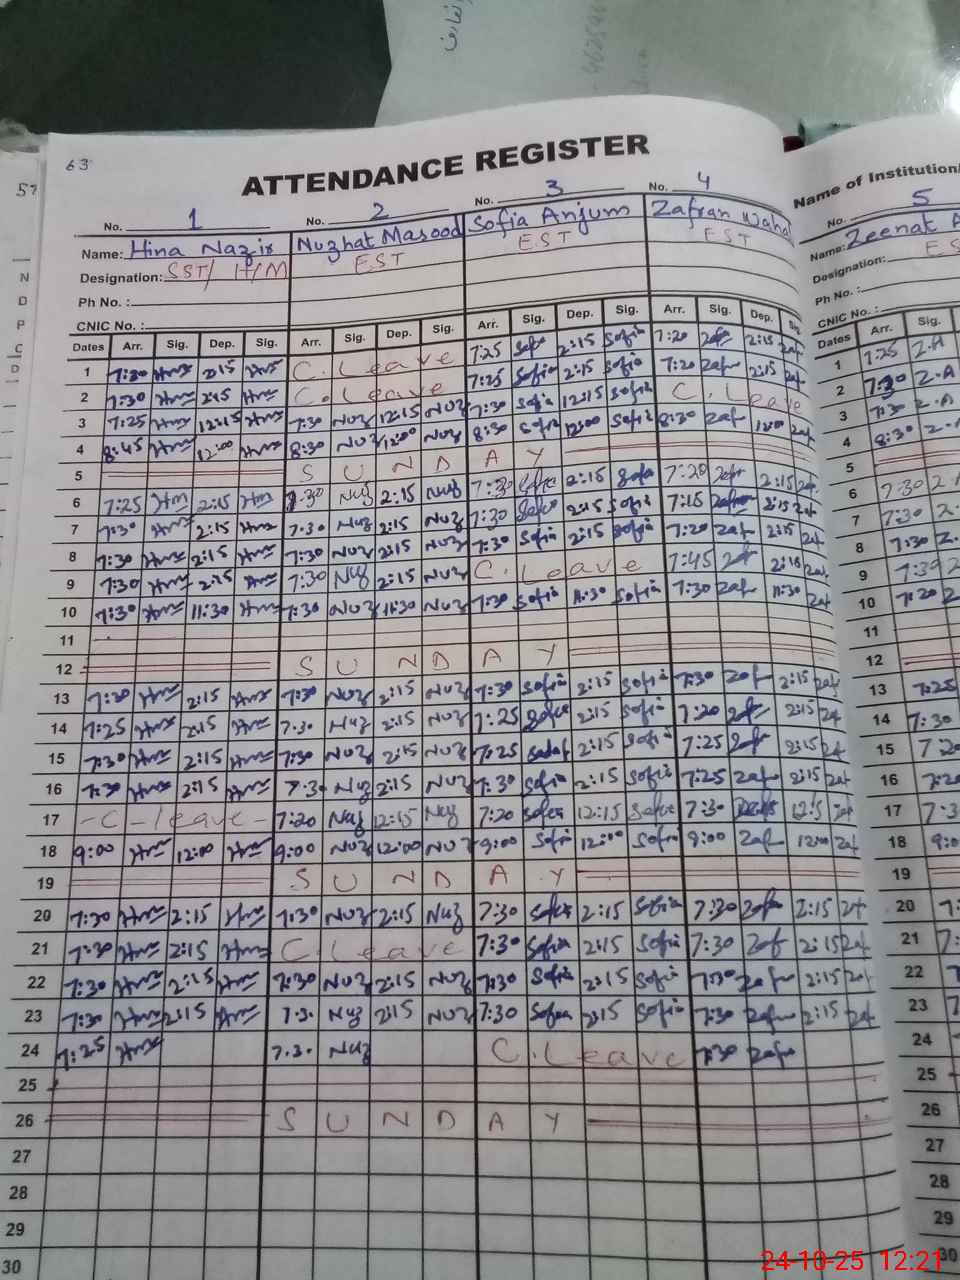 63
57
ATTENDANCE REGISTER
Name of Institution/
No. 1 No. 2 No. 3 No. 4 No. 5
Name: Hina Nazir Nuzhat Masood Sofia Anjum Zafran Waha Name: Zeenat A
Designation: SST/ H/M EST EST EST Designation: ES
Ph No. : Ph No. :
CNIC No. : CNIC No. :
Dates Arr. Sig. Dep. Sig. Arr. Sig. Dep. Sig. Arr. Sig. Dep. Sig. Arr. Sig. Dep. Sig. Dates Arr. Sig.
1 7:30 2:15 C. Leave 7:25 Sofia 2:15 Sofia 7:20 Zaf 2:15 Zaf 1 7:25 Z.A
2 7:30 2:15 C. Leave 7:25 Sofia 2:15 Sofia 7:20 Zaf 2:15 Zaf 2 7:30 Z.A
3 7:25 12:15 7:30 Nuz 12:15 Nuz 7:30 Sofia 12:15 Sofia C. Leave 3 7:30 Z.A
4 8:45 12:00 8:30 Nuz 12:00 Nuz 8:30 Sofia 12:00 Sofia 8:30 Zaf 12:00 Zaf 4 8:30 Z.
5 SUNDAY 5
6 7:25 2:15 7:30 Nuz 2:15 Nuz 7:30 2:15 7:20 Zaf 2:15 Zaf 6 7:30 Z
7 7:30 2:15 7:30 Nuz 2:15 Nuz 7:30 2:15 Sofia 7:15 2:15 Zaf 7 7:30 Z.
8 7:30 2:15 7:30 Nuz 2:15 Nuz 7:30 Sofia 2:15 Sofia 7:20 Zaf 2:15 Zaf 8 7:30 Z.
9 7:30 2:15 7:30 Nuz 2:15 Nuz C. Leave 7:45 Zaf 2:15 Zaf 9 7:30 Z
10 7:30 11:30 7:30 Nuz 11:30 Nuz 7:30 Sofia 11:30 Sofia 7:30 Zaf 11:30 Zaf 10 7:20 Z
11 11
12 SUNDAY 12
13 7:30 2:15 7:30 Nuz 2:15 Nuz 7:30 Sofia 2:15 Sofia 7:30 Zaf 2:15 Zaf 13 7:25
14 7:25 2:15 7:30 Nuz 2:15 Nuz 7:25 2:15 Sofia 7:20 Zaf 2:15 Zaf 14 7:30
15 7:30 2:15 7:30 Nuz 2:15 Nuz 7:25 2:15 Sofia 7:25 Zaf 2:15 Zaf 15 7:20
16 7:30 2:15 7:30 Nuz 2:15 Nuz 7:30 Sofia 2:15 Sofia 7:25 Zaf 2:15 Zaf 16 7:20
17 - C - leave - 7:20 Nuz 12:15 Nuz 7:20 Sofia 12:15 7:30 12:15 Zaf 17 7:3
18 9:00 12:00 9:00 Nuz 12:00 Nuz 9:00 Sofia 12:00 Sofia 9:00 Zaf 12:00 Zaf 18 9:0
19 SUNDAY 19
20 7:30 2:15 7:30 Nuz 2:15 Nuz 7:30 2:15 Sofia 7:30 Zaf 2:15 Zaf 20 7:
21 7:30 2:15 C. Leave 7:30 Sofia 2:15 Sofia 7:30 Zaf 2:15 Zaf 21 7:
22 7:30 2:15 7:30 Nuz 2:15 Nuz 7:30 Sofia 2:15 Sofia 7:30 Zaf 2:15 Zaf 22 7
23 7:30 2:15 7:30 Nuz 2:15 Nuz 7:30 Sofia 2:15 Sofia 7:30 Zaf 2:15 Zaf 23 7
24 7:25 7:30 Nuz C. Leave 7:30 Zaf 24
25 25
26 SUNDAY 26
27 27
28 28
29 29
30 30
24-10-25 12:21